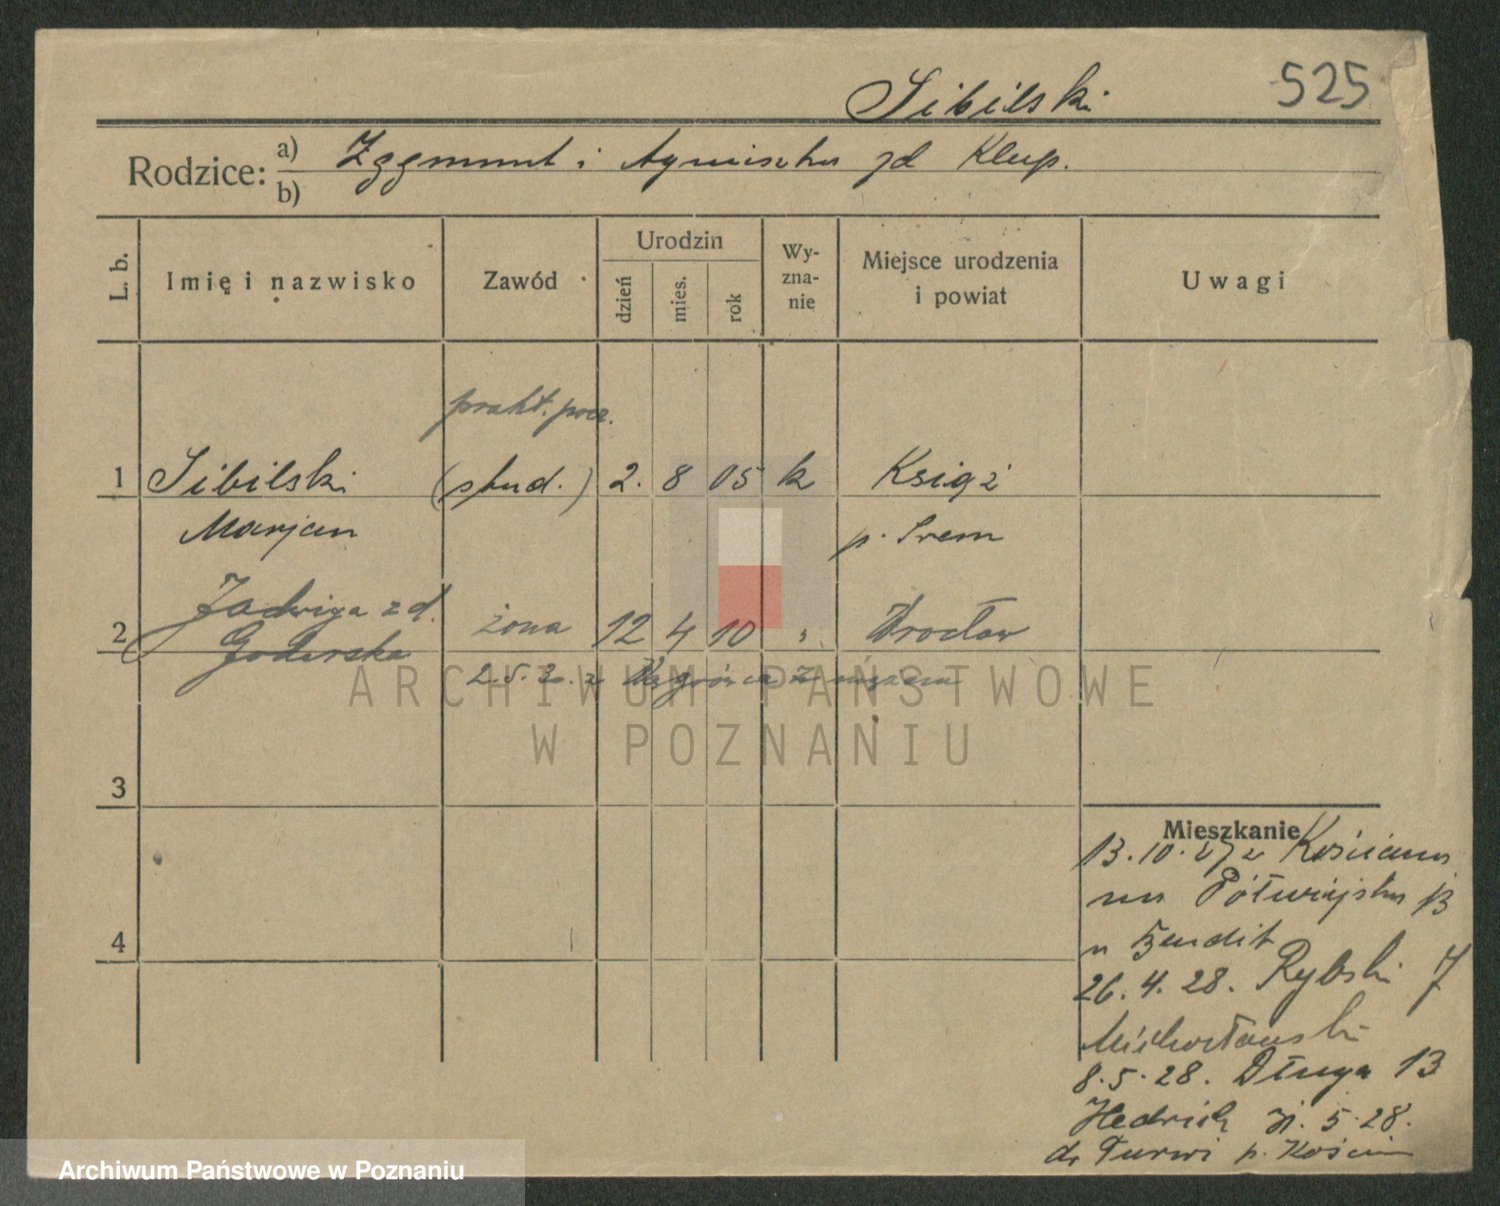 Sibilski
525
Rodzice: a) Zygmunt i Agnieszka zd Klup.
b)
L. b.
Imię i nazwisko
Zawód
Urodzin
dzień
mies.
rok
Wy-
zna-
nie
Miejsce urodzenia
i powiat
Uwagi
prakt. pocz.
1 Sibilski (stud.) 2. 8 05 k Książ
Marjan p. Śrem
2 Jadwiga zd. żona 12 4 10 " Wrocław
Goderska
2.5.30. z Wągrówca z mężem
3
4
Mieszkanie
13.10.27 z Kościana
na Półwiejska 13
u Bendit
26.4.28. Rybaki 7
8.5.28. Długa 13
Hedrich 31.5.28.
do Turwi p. Kościan
ARCHIWUM PAŃSTWOWE
W POZNANIU
Archiwum Państwowe w Poznaniu